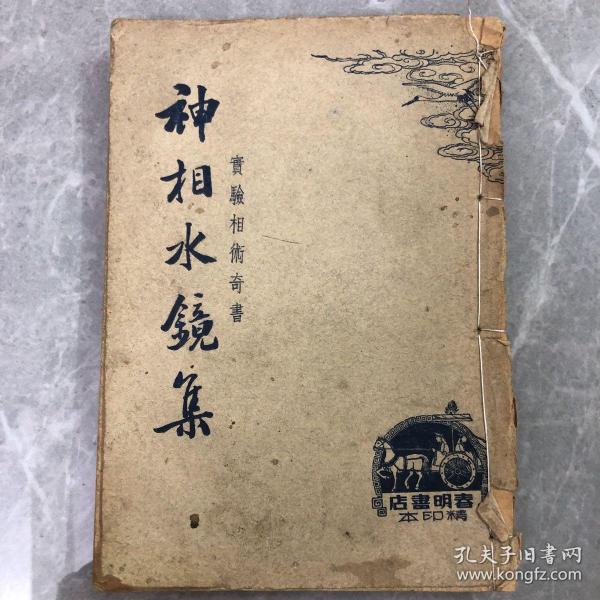 實驗相術奇書
神相水鏡集
春明書店
精印本
孔夫子旧书网
www.kongfz.com